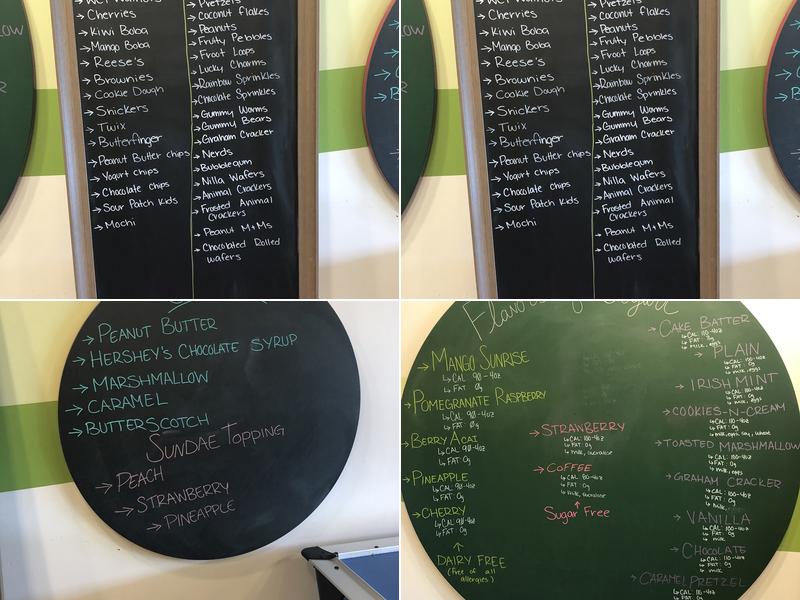 → Cherries
→ Kiwi Boba
→ Mango Boba
→ Reese's
→ Brownies
→ Cookie Dough
→ Snickers
→ Twix
→ Butterfinger
→ Peanut Butter chips
→ Yogurt chips
→ Chocolate chips
→ Sour Patch Kids
→ Mochi
→ Pretzels
→ Coconut flakes
→ Peanuts
→ Fruity Pebbles
→ Froot Loops
→ Lucky Charms
→ Rainbow Sprinkles
→ Chocolate Sprinkles
→ Gummy Worms
→ Gummy Bears
→ Graham Cracker
→ Nerds
→ Bubblegum
→ Nilla Wafers
→ Animal Crackers
→ Frosted Animal
Crackers
→ Peanut M+Ms
→ Chocolated Rolled
wafers
→ Cherries
→ Kiwi Boba
→ Mango Boba
→ Reese's
→ Brownies
→ Cookie Dough
→ Snickers
→ Twix
→ Butterfinger
→ Peanut Butter chips
→ Yogurt chips
→ Chocolate chips
→ Sour Patch Kids
→ Mochi
→ Pretzels
→ Coconut flakes
→ Peanuts
→ Fruity Pebbles
→ Froot Loops
→ Lucky Charms
→ Rainbow Sprinkles
→ Chocolate Sprinkles
→ Gummy Worms
→ Gummy Bears
→ Graham Cracker
→ Nerds
→ Bubblegum
→ Nilla Wafers
→ Animal Crackers
→ Frosted Animal
Crackers
→ Peanut M+Ms
→ Chocolated Rolled
wafers
→ PEANUT BUTTER
→ HERSHEY'S CHOCOLATE SYRUP
→ MARSHMALLOW
→ CARAMEL
→ BUTTERSCOTCH
SUNDAE TOPPING
→ PEACH
→ STRAWBERRY
→ PINEAPPLE
Flavors of Yogurt
→ MANGO SUNRISE
↳ CAL 90-4oz
↳ FAT 0g
→ POMEGRANATE RASPBERRY
↳ CAL 90-4oz
↳ FAT: 0g
→ BERRY ACAI
↳ CAL: 90-4oz
↳ FAT: 0g
→ PINEAPPLE
↳ CAL: 90-4oz
↳ FAT: 0g
→ CHERRY
↳ CAL: 90-4oz
↳ FAT: 0g
↑
DAIRY FREE
(free of all
allergies)
→ STRAWBERRY
↳ CAL: 100-4oz
↳ FAT: 0g
↳ milk, sucralose
→ COFFEE
↳ CAL: 80-4oz
↳ FAT: 0g
↳ milk, sucralose
↑
Sugar Free
→ CAKE BATTER
↳ CAL: 110-4oz
↳ FAT: 0g
↳ milk, eggs
→ PLAIN
↳ CAL: 100-4oz
↳ FAT: 0g
↳ milk, eggs
→ IRISH MINT
↳ CAL: 100-4oz
↳ FAT: 0g
↳ milk, eggs
→ COOKIES-N-CREAM
↳ CAL: 110-4oz
↳ FAT: 0g
↳ milk, eggs, soy, wheat
→ TOASTED MARSHMALLOW
↳ CAL: 100-4oz
↳ FAT: 0g
↳ milk, eggs
→ GRAHAM CRACKER
↳ CAL: 100-4oz
↳ FAT: 0g
↳ milk
→ VANILLA
↳ CAL: 100-4oz
↳ FAT: 0g
↳ milk
→ CHOCOLATE
↳ CAL: 110-4oz
↳ FAT: 0g
↳ milk
→ CARAMEL PRETZEL
↳ CAL: 110-4oz
↳ FAT: 0g